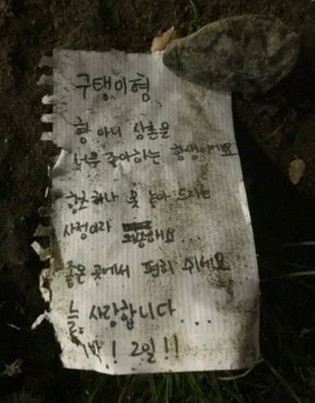 구탱이형
형 아니 삼촌을
너무 좋아하는 학생이에요
향초 하나 못 놓아 드리는
사정이라 죄송해요
좋은 곳에서 편히 쉬세요
늘 사랑합니다....
1박! 2일!!